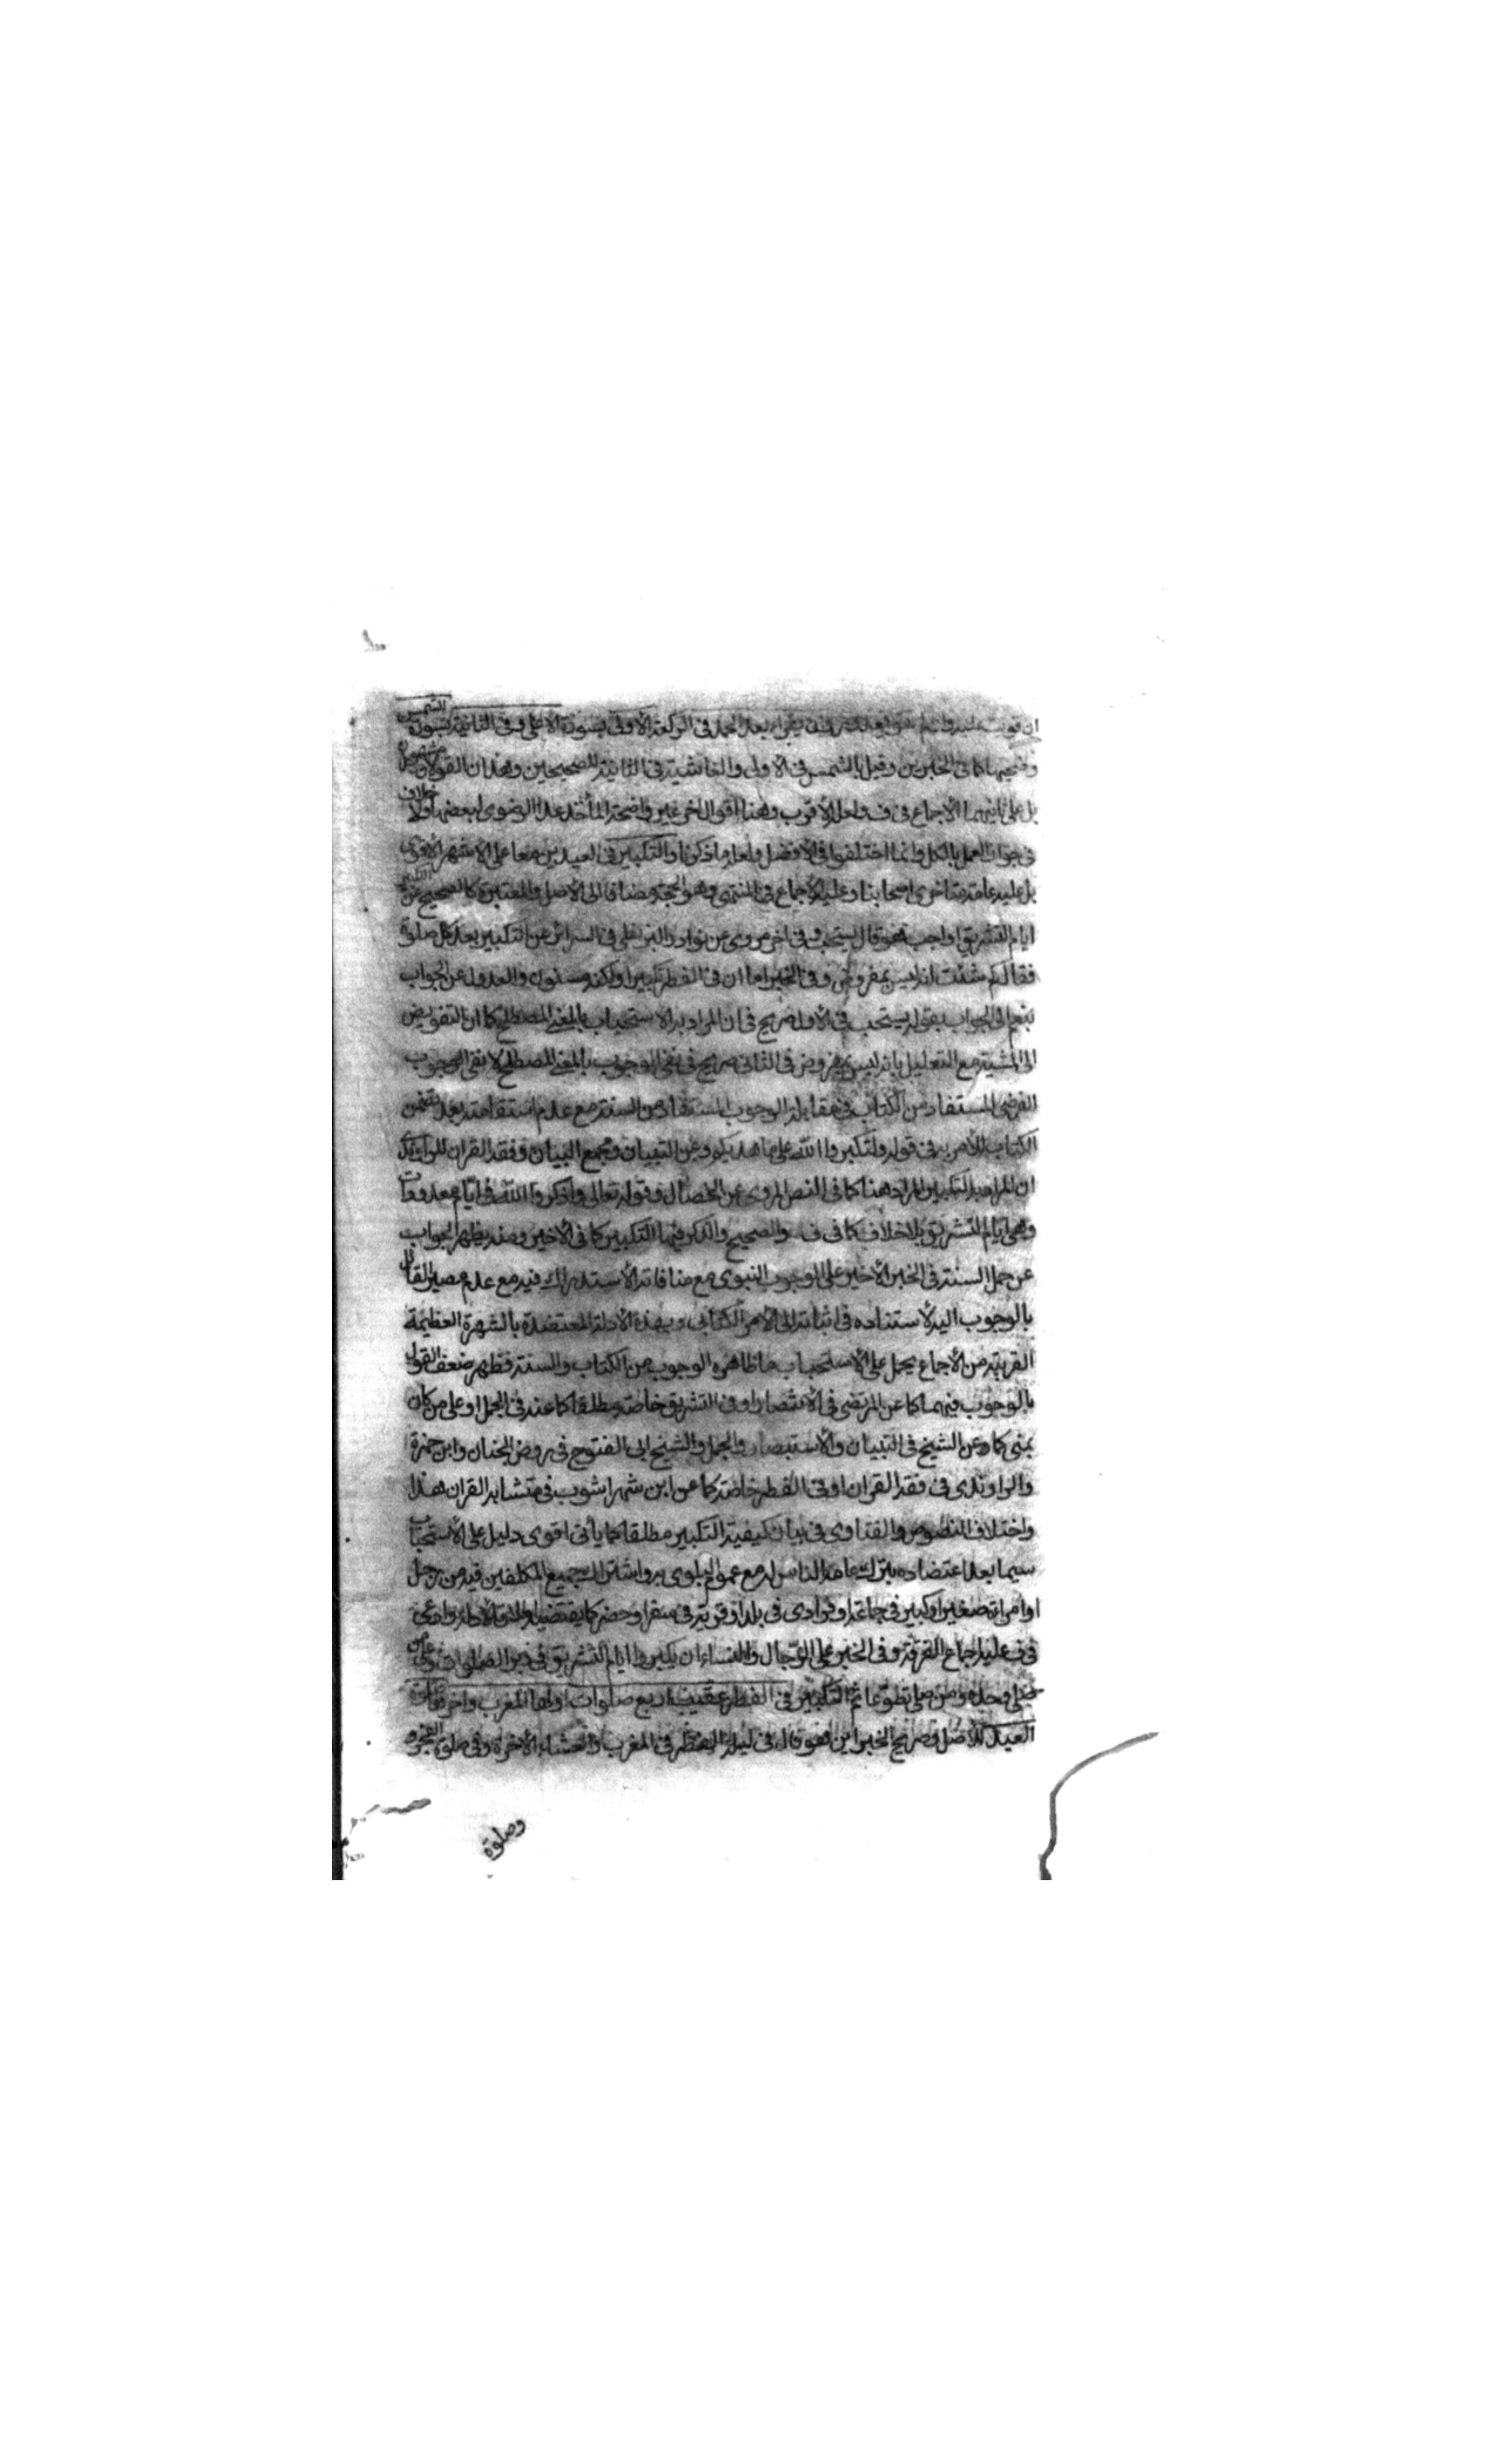 ان قويت عليه وان يقراء بعد الحمد فى الركعة الأولى بسورة الأعلى وفى الثانية بسورة الشمس
وضحيها كما فى الخبرين وقيل بالشمس فى الأولى والغاشية فى الثانية للصحيحين وهذان القولان مشهوران
بل على ثانيهما الأجماع فى ف ولعله الأقرب وهنا اقوال اخر غير واضحة المأخذ عدا الرضوى لبعضها ولا خلاف
فى جواز العمل بالكل وانما اختلفوا فى الأفضل ولعله ما ذكرنا والتكبير فى العيدين معا على الأشهر الأقوى
بل عليه عامة متاخرى اصحابنا وعليه الأجماع فى المنتهى وهو الحجة مضافا الى الأصل والمعتبرة كالصحيح عن التكبير
ايام التشريق اواجب هو قال يستحب وفى اخر مروى عن نوادر البزنطى فى السرائر عن التكبير بعد كل صلوة
فقال كم شئت انه ليس بمفروض وفى الخبر اما ان فى الفطر تكبيرا ولكنه مسنون والعدول عن الجواب
بنعم الى الجواب بقوله يستحب فى الأول صريح فى ان المراد به الاستحباب بالمعنى المصطلح كما ان التفويض
الى المشية مع التعليل بانه ليس بمفروض فى الثانى صريح فى نفى الوجوب بالمعنى المصطلح لا نفى الوجوب
الفرضى المستفاد من الكتاب فى مقابلة الوجوب المستفاد من السنة مع عدم استقامته بعد تضمن
الكتاب للأمر به فى قوله ولتكبروا الله على ما هديكم وعن التبيان ومجمع البيان وفقه القران للراوندى
ان المراد بالتكبير المراد هنا كما فى النص المروى عن الخصال وقوله تعالى واذكروا الله فى ايام معدودات
وهى ايام التشريق بلا خلاف كما فى ف والصحيح والذكر فيها التكبير كما فى الأخير ومنه يظهر الجواب
عن حمل السنة فى الخبر الأخير على الوجوب النبوى مع منافاته الأستدراك فيه مع عدم مصير القائل
بالوجوب اليه لأستناده فى اثباته الى الأمر الكتابى وبهذه الأدلة المعتضدة بالشهرة العظيمة
القريبة من الأجماع يحمل على الأستحباب ما ظاهره الوجوب من الكتاب والسنة فظهر ضعف القول
بالوجوب فيهما كما عن المرتضى فى الأنتصار او فى التشريق خاصة مطلقا كما عنه فى الجمل او على من كان
بمنى كما عن الشيخ فى التبيان والأستبصار والجمل والشيخ ابى الفتوح فى روض الجنان وابن حمزة
والراوندى فى فقه القران او فى الفطر خاصة كما عن ابن شهراشوب فى متشابه القران هذا
واختلاف النصوص والفتاوى فى بيان كيفية التكبير مطلقا كما يأتى اقوى دليل على الأستحباب
سيما بعد اعتضاده بترك عامة الناس له مع عموم البلوى به واشتراك جميع المكلفين فيه من رجل
او امراة صغير او كبير فى جماعة او فرادى فى بلد او قرية فى سفر او حضر كما يقتضيه اطلاق الأدلة وادعى
فى ف عليه اجماع الفرقة وفى الخبر على الرجال والنساء ان يكبروا ايام التشريق فى دبر الصلوات وعلى من
صلى وحده ومن صلى تطوعا ثم التكبير فى الفطر عقيب اربع صلوات اولها المغرب واخرها صلوة
العيد للأصل وصريح الخبر اين هو قال فى ليلة الفطر فى المغرب والعشاء الأخرة وفى صلوة الفجر و
وصلوة